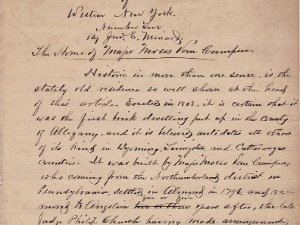 of
Western New York.
Number Four
by Jno. E. Minard
The Home of Major Moses Van Campen
Historic in more than one sense, is the
stately old residence so well shown at the head
of this article. Erected in 180 , it is certain that it
was the first brick dwelling put up in the County
of Allegany, and it is believed antedates all others
of its kind in Wyoming, Livingston and Cattaraugus
counties. It was built by Major Moses Van Campen
who coming from the Northumberland district in
Pennsylvania, settled in Almond in 1796, and re-
moving to Angelica two or three years after, the late
Judge Philip Church having made arrangements